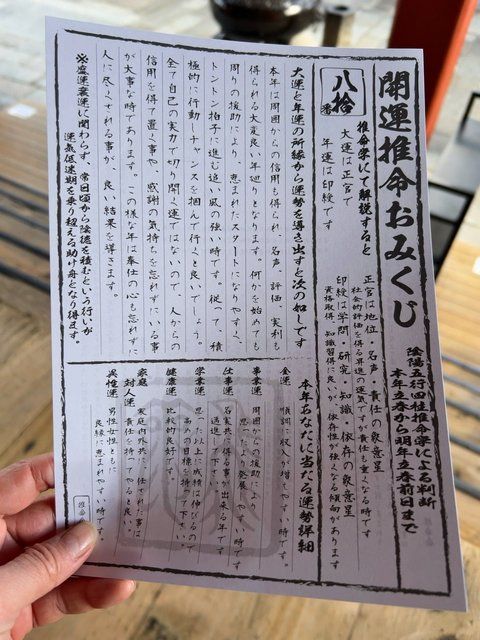 開運推命おみくじ
陰陽五行四柱推命学による判断
本年立春から明年立春前日まで
八拾番
推命学にて解説すると
大運は正官で
年運は印綬です
正官は地位・名声・責任の象意星
社会的評価を得る昇進の運気ですが責任も重くなる時です
印綬は学問・研究・知識・依存の象意星
資格取得、知識習得に良いが、依存性が強くなる傾向があります
大運と年運の所縁から運勢を導き出すと次の如しです
本年は周囲からの信用も得られ、名声、評価、実利も
得られる大変良い年廻りとなります。何かを始めても
周りの援助により、恵まれたスタートになりやすく、
トントン拍子に進む追い風の強い時です。従って、積
極的に行動しチャンスを掴んで行くと良いでしょう。
全て自己の実力で切り開く運ではないので、人からの
信用を得て置く事や、感謝の気持ちを忘れずにいる事
が大事な時であります。この様な年は奉仕の心も忘れずに
人に尽くされる事が、良い結果を導きます。
※盛運衰運に関わらず、常日頃から陰徳を積むという行いが
運気低迷期を乗り超える助け舟となり得ます。
本年あなたに当たる運勢詳細
金運 順調に収入が増えやすい時です。
事業運 周囲からの援助により
思ったより発展しやすい時です
仕事運 名実共に得る事が出来る年です
邁進して下さい。
学業運 思った以上に成績は伸びるので
高めの目標を持って下さい。
健康運 比較的良好です。
家庭
対人運 家庭内外共に、任された事は
責任を持ってやると良い。
異性運 男性女性ともに
良縁に恵まれやすい時です。